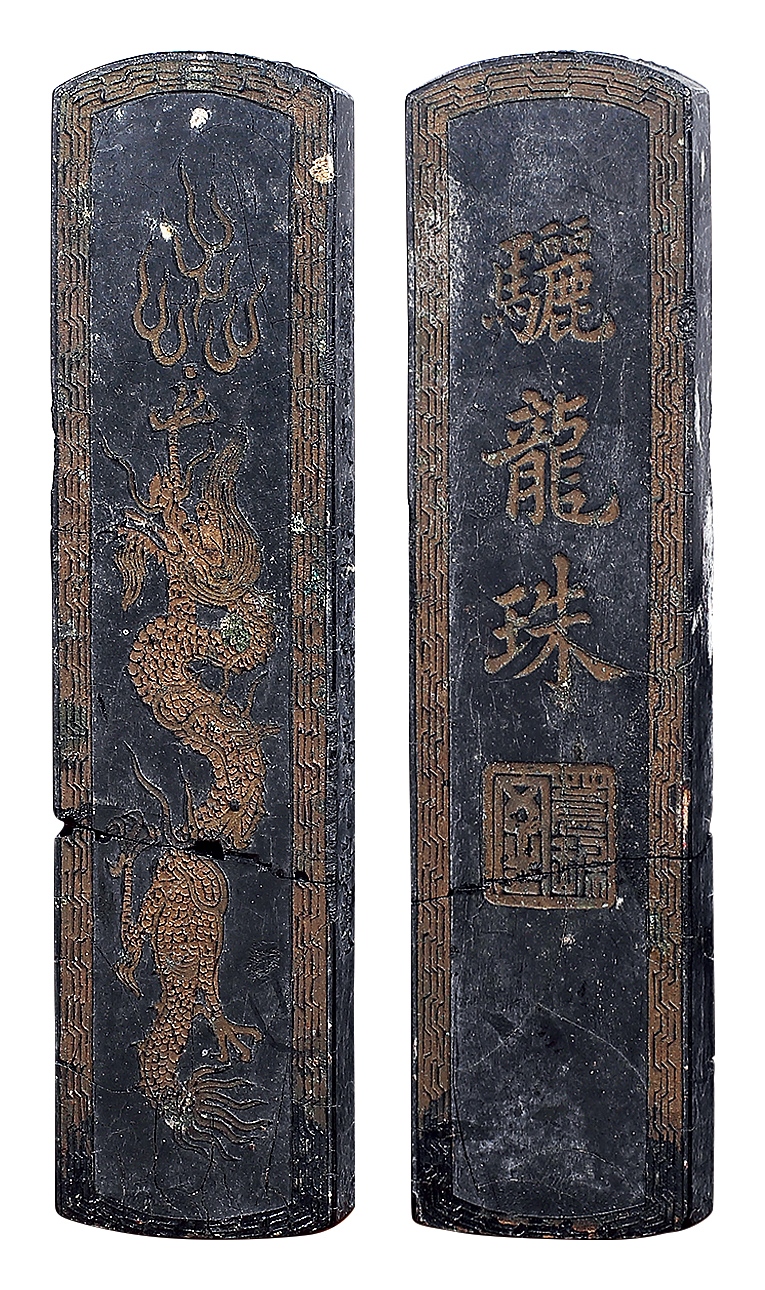 驪龍珠